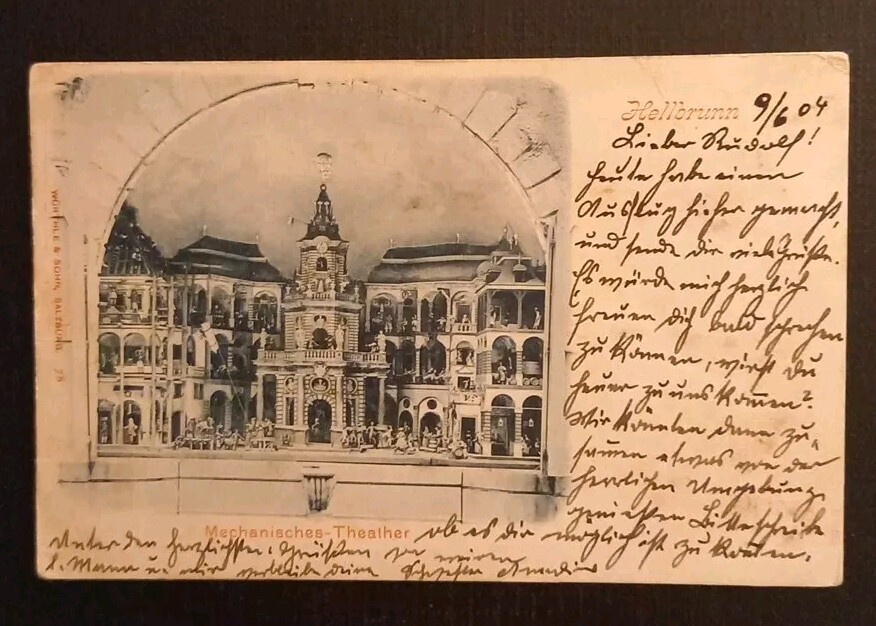 Hellbrunn 9/6 04
Lieber Rudolf!
heute habe einen
Ausflug hieher gemacht,
und sende dir viele Grüße.
Es würde mich herzlich
freuen dich bald sprechen
zu können, wirst du
heuer zu uns kom̅en?
Wir könnten dann zu„
sam̅en etwas von der
herrlichen Umgebung
genießen Bitte schreibe
ob es dir möglich ist zu kom̅en.
Unter den herzlichsten Grüßen
Mama u. mir verbleibe deine
Mechanisches-Theather
WÜRTHLE & SOHN, SALZBURG. 78